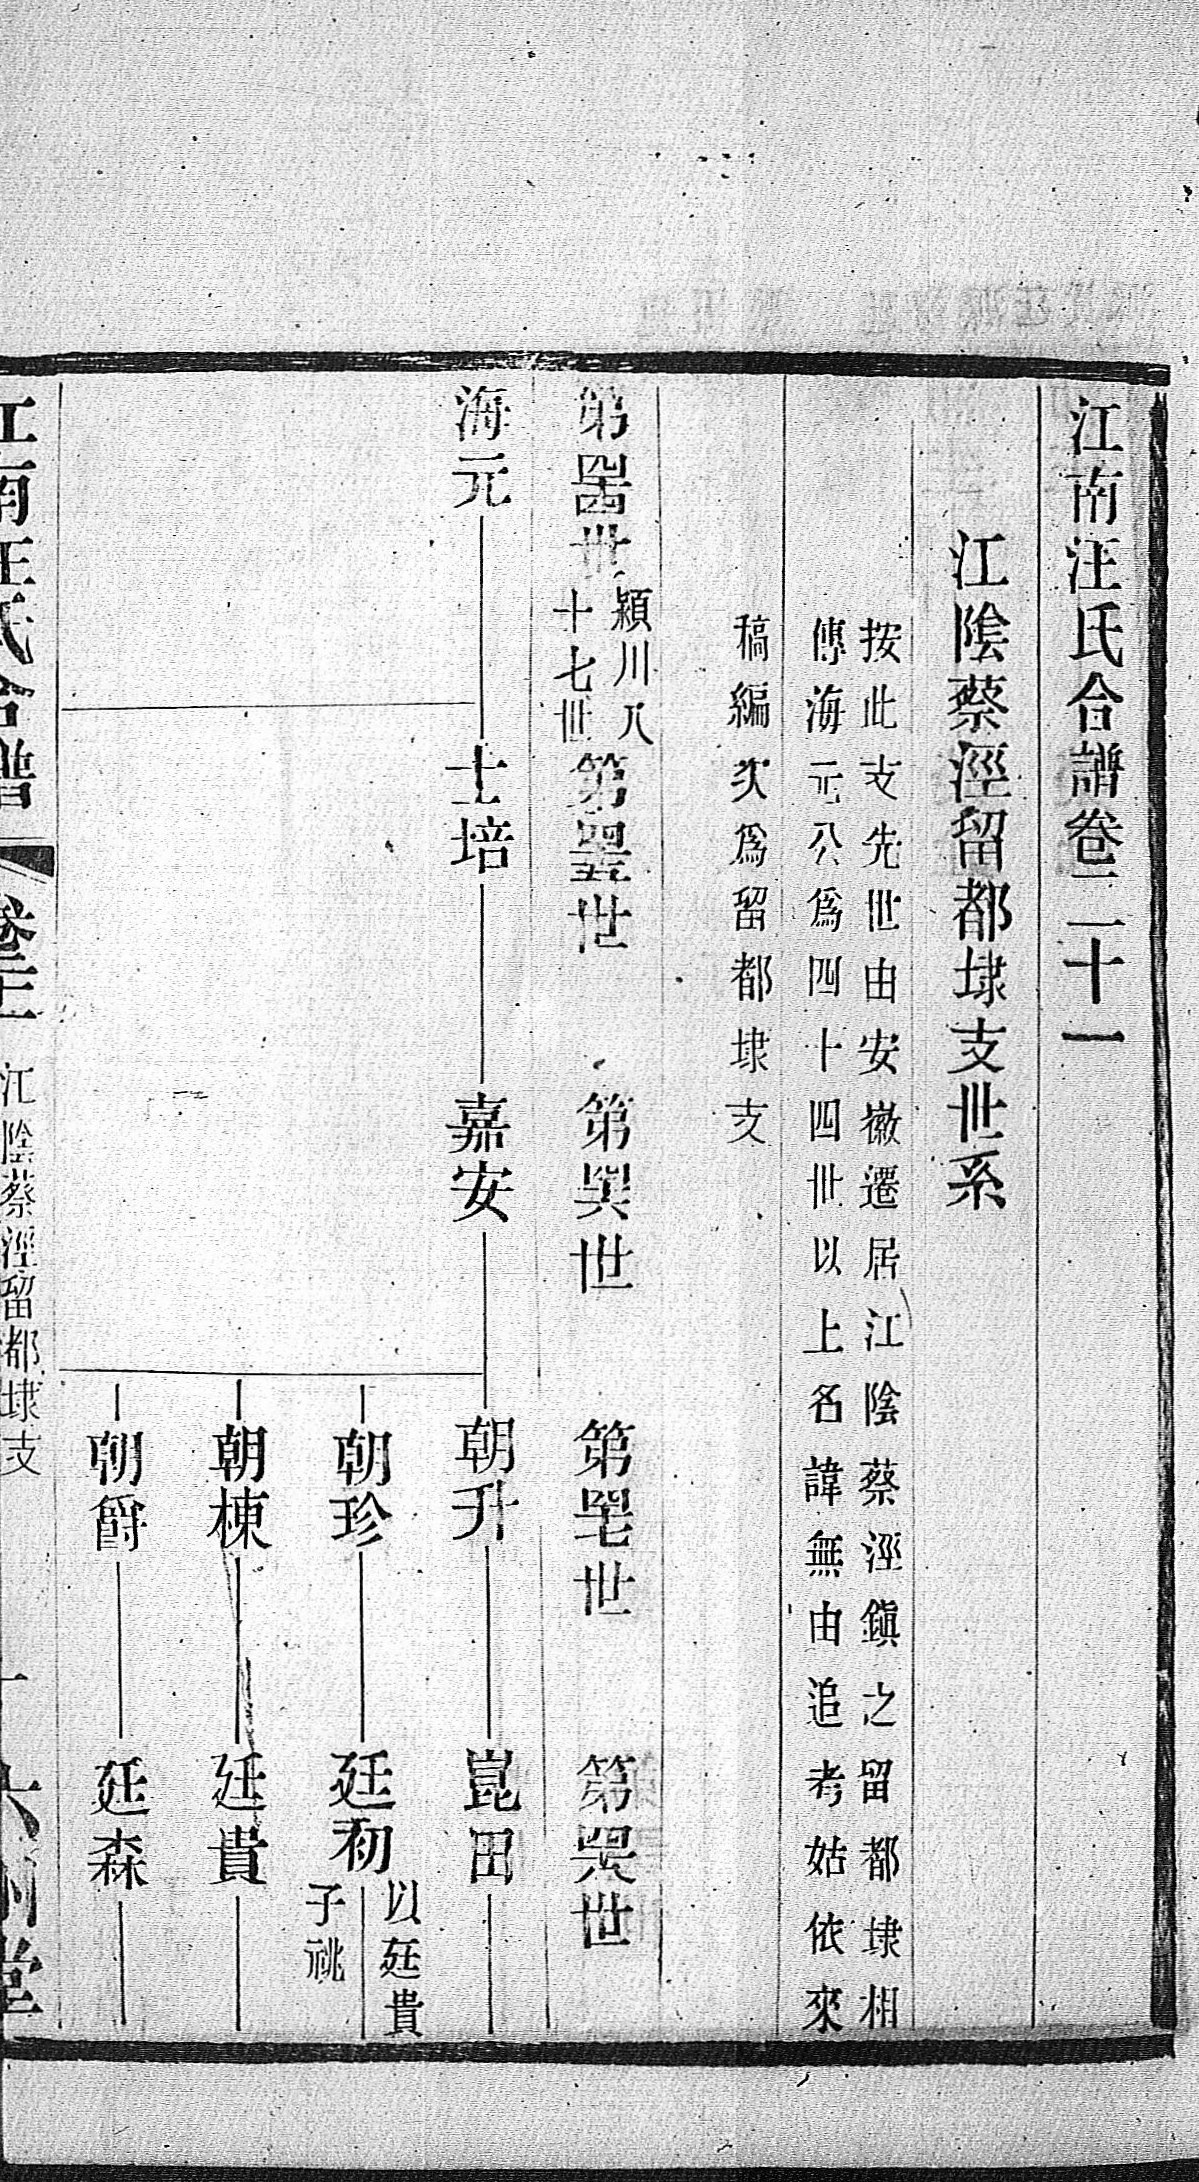 江南汪氏合譜卷二十一
江陰蔡涇留都埭支世系
按此支先世由安徽遷居江陰蔡涇鎮之留都埭相
傳海元公爲四十四世以上名諱無由追考姑依來
稿編次爲留都埭支
第四四世 潁川八十七世 第四五世 第四六世 第四七世 第四八世
海元 士培 嘉安 朝升 崑田
朝珍 廷初 以廷貴子祧
朝棟 廷貴
朝爵 廷森
江南汪氏合譜 卷二十一 江陰蔡涇留都埭支